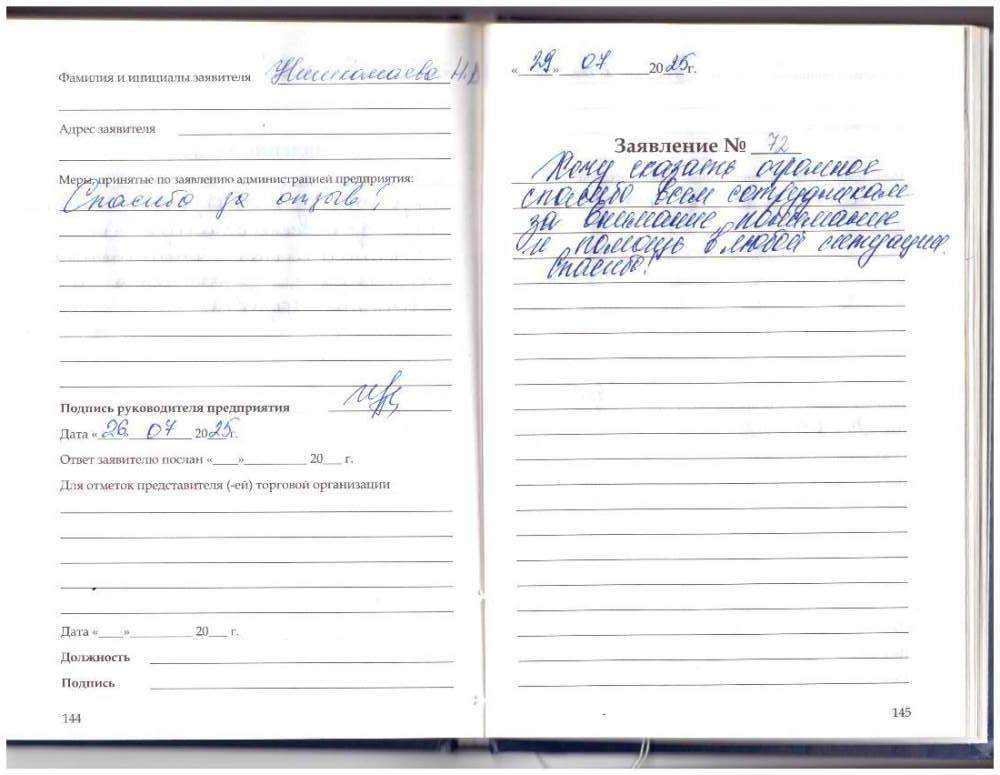 Фамилия и инициалы заявителя
Адрес заявителя
Меры, принятые по заявлению администрацией предприятия:
Спасибо за отзыв!
Подпись руководителя предприятия
Дата «26» 07 2025г.
Ответ заявителю послан «____»__________ 20___ г.
Для отметок представителя (-ей) торговой организации
Дата «____»__________ 20___ г.
Должность
Подпись
144
«29» 07 2025г.
Заявление № 72
Хочу сказать огромное
спасибо всем сотрудникам
за внимание, понимание
и помощь в любой ситуации.
Спасибо!
145